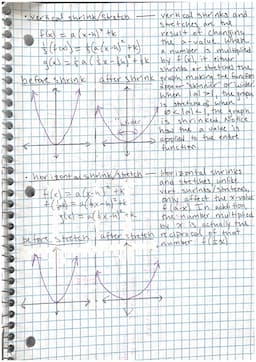 • vertical shrink/stretch —
f(x) = a(x-h)² + k
½(f(x)) = ½(a(x-h)² + k)
before shrink | after shrink
wider
vertical shrinks and
stretches are the
result of changing
the a-value. When
a number is multiplied
by f(x), it either
shrinks or stretches the
graph making the function
appear skinnier or wider.
when |a|>1, the graph
is stretched when
0<|a|<1, the graph
is shrinked. Notice
how the a value is
applied to the entire
function.
• horizontal shrink/stretch —
f(x) = a(x-h)² + k
before stretch | after stretch
Horizontal shrinks
and stretches, unlike
vert shrinks/stretches,
only affect the x-value
f(a·x). In addition,
the number multiplied
by x is actually the
reciprocal of that
number f(½x)